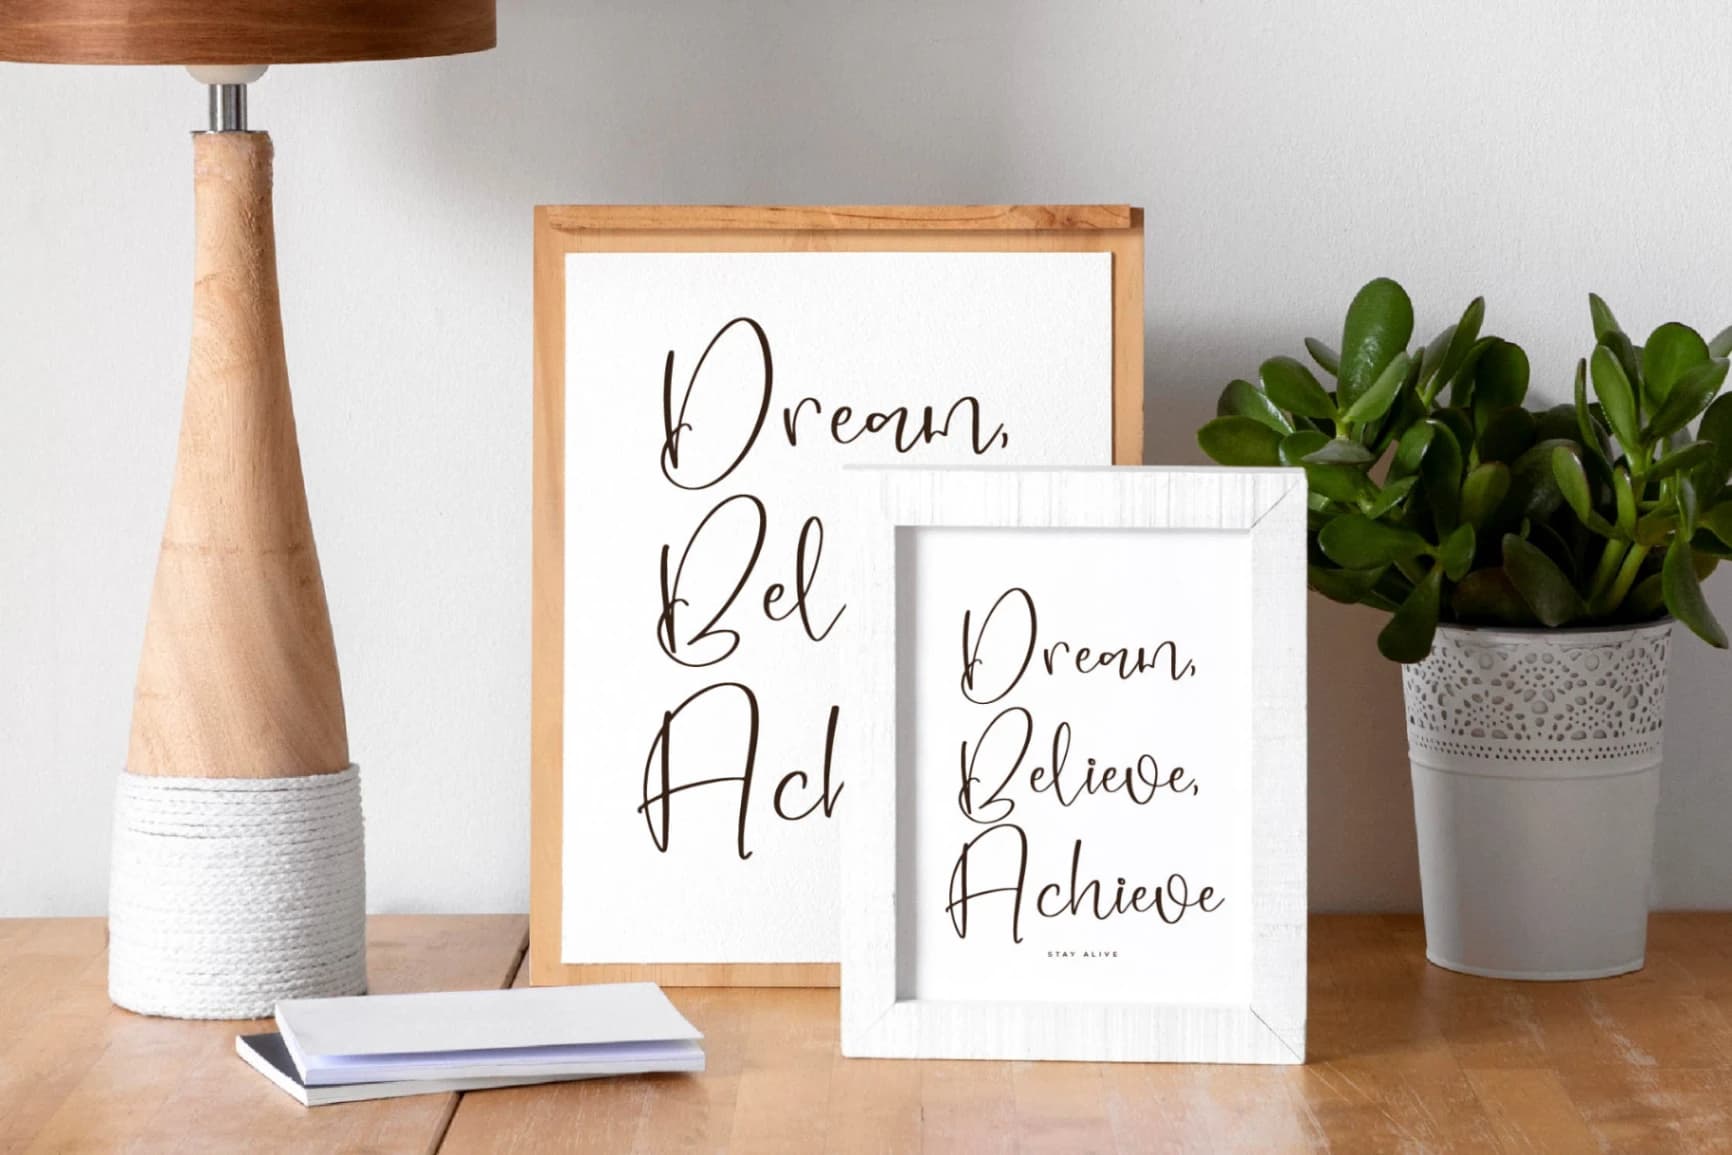 Dream,
Bel
Ach
Dream,
Believe,
Achieve
STAY ALIVE